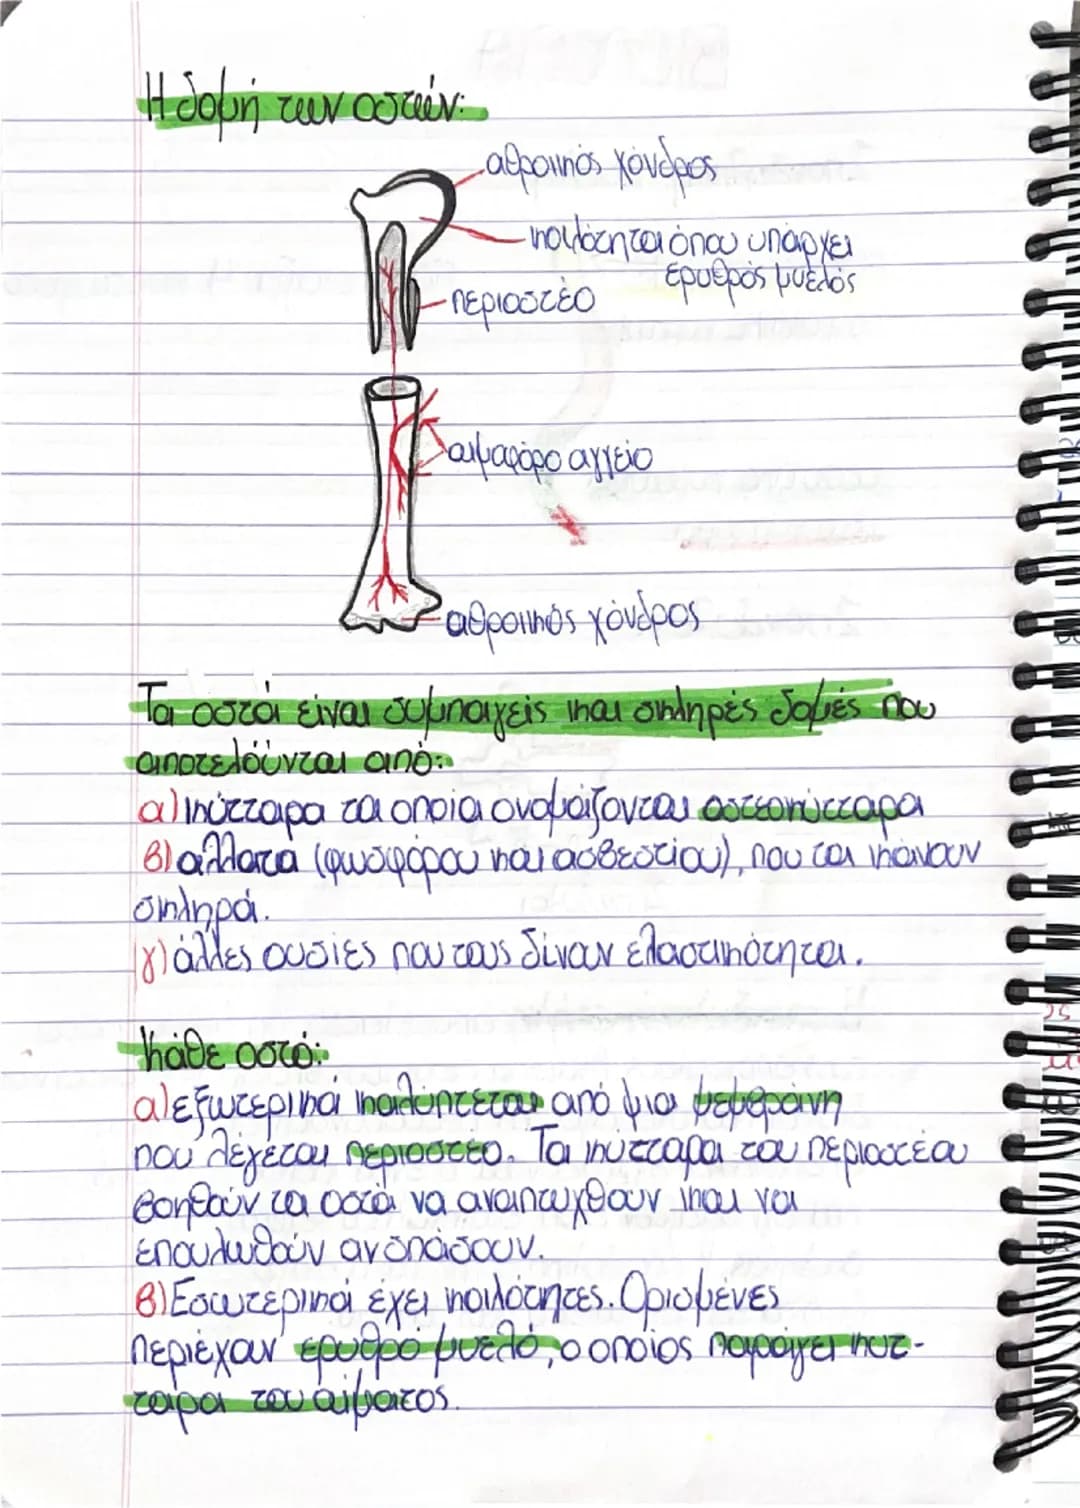 Η δομή των οστών:
αθροικός χόνδρος
κοιλότητα όπου υπάρχει
ερυθρός μυελός
περιοστέο
αιμαφόρο αγγείο
αθροικός χόνδρος
Τα οστά είναι συμπαγείς και σκληρές δομές που
αποτελούνται από:
α) κύτταρα τα οποία ονομάζονται οστεοκύτταρα
β) άλλατα (φωσφόρου και ασβεστίου), που τα κάνουν
σκληρά.
γ) άλλες ουσίες που τους δίνουν ελαστικότητα.
Κάθε οστό:
α) εξωτερικά καλύπτεται από μια μεμβράνη
που λέγεται περιοστέο. Τα κύτταρα του περιοστέου
βοηθούν τα οστά να αναπτυχθούν και να
επουλωθούν αν σπάσουν.
β) Εσωτερικά έχει κοιλότητες. Ορισμένες
περιέχουν ερυθρό μυελό, ο οποίος παράγει κύτ-
ταρα του αίματος.